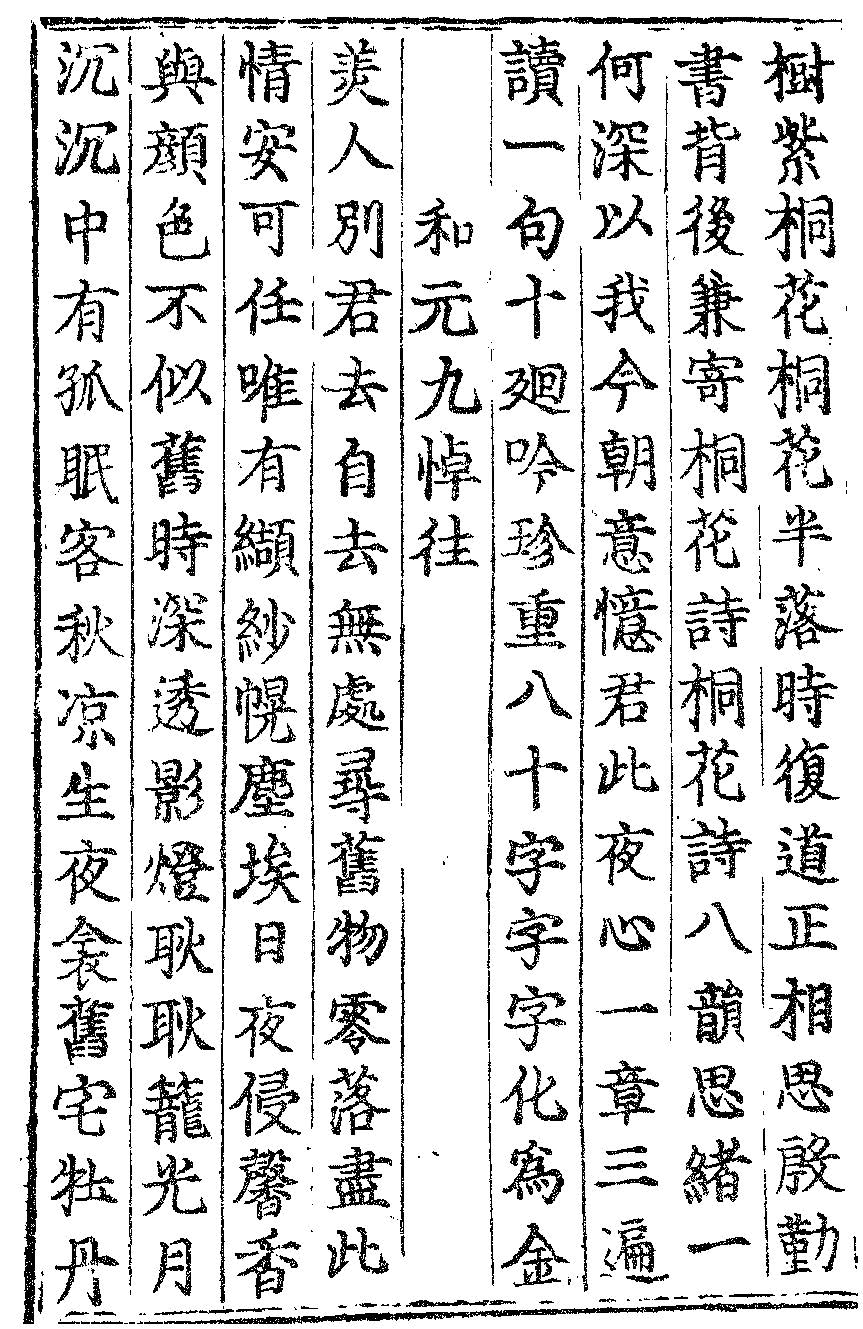 樹紫桐花桐花半落時復道正相思殷勤
書背後兼寄桐花詩桐花詩八韻思緒一
何深以我今朝意憶君此夜心一章三遍
讀一句十廻吟珍重八十字字字化為金
和元九悼往
美人別君去自去無處尋舊物零落盡此
情安可任唯有纈紗幌塵埃日夜侵馨香
與顔色不似舊時深透影燈耿耿籠光月
沉沉中有孤眠客秋凉生夜衾舊宅牡丹